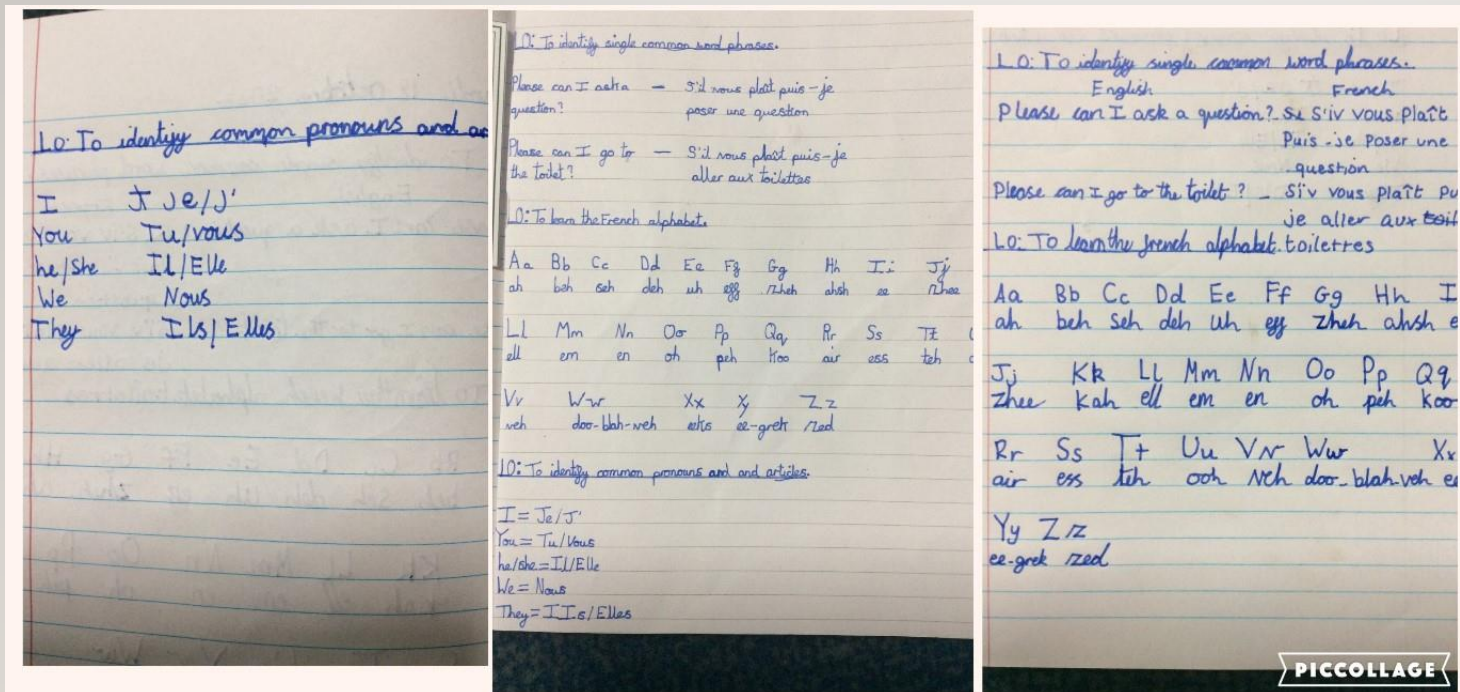 LO: To identify common pronouns and ar
I Je/J'
You Tu/vous
he/She Il/Elle
We Nous
They Ils/Elles
LO: To identify single common word phrases.
Please can I ask a — S'il vous plaît puis-je
question? poser une question
Please can I go to — S'il vous plaît puis-je
the toilet? aller aux toilettes
LO: To learn the French alphabet.
Aa Bb Cc Dd Ee Ff Gg Hh Ii Jj
ah beh seh deh uh eff zheh ahsh ee zhee
Ll Mm Nn Oo Pp Qq Rr Ss Tt
ell em en oh peh koo air ess teh
Vv Ww Xx Yy Zz
veh doo-blah-veh eeks ee-grek zed
LO: To identify common pronouns and and articles.
I = Je/J'
You = Tu/Vous
he/she = Il/Elle
We = Nous
They = IIs/Elles
LO: To identify single common word phrases.
English French
Please can I ask a question? S'iv vous Plaît
Puis-je Poser une
question
Please can I go to the toilet? - S'iv vous Plaît Pu
je aller aux toil
LO: To learn the french alphabet. toilettes
Aa Bb Cc Dd Ee Ff Gg Hh I
ah beh seh deh uh eff zheh ahsh e
Jj Kk Ll Mm Nn Oo Pp Qq
zhee kah ell em en oh peh koo
Rr Ss Tt Uu Vv Ww Xx
air ess teh ooh veh doo-blah-veh ee
Yy Zz
ee-grek zed
PICCOLLAGE